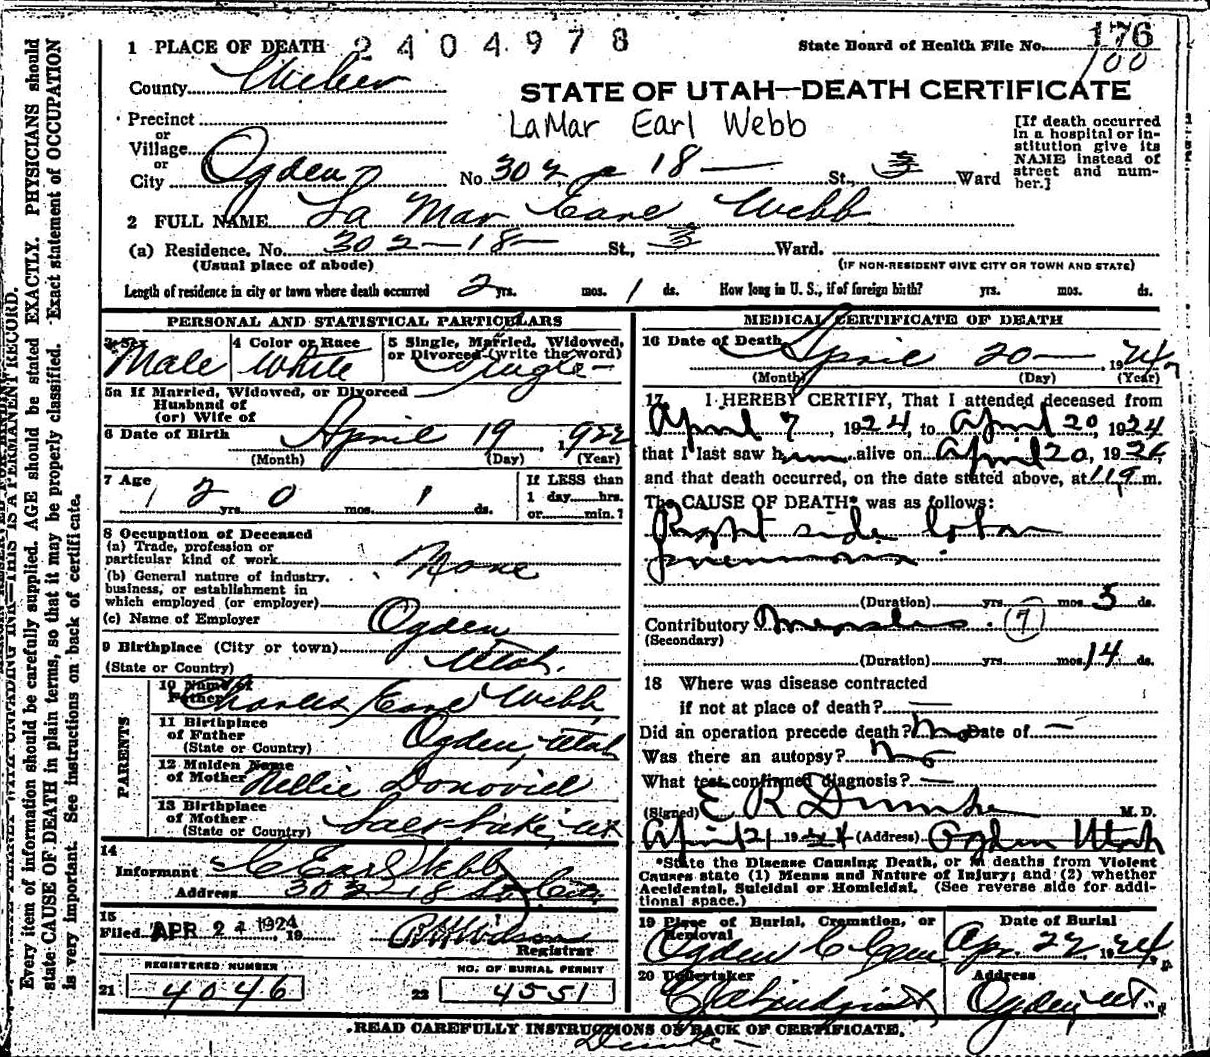 1 PLACE OF DEATH 2404978 State Board of Health File No. 176
100
County Weber
STATE OF UTAH—DEATH CERTIFICATE
LaMar Earl Webb
Precinct
or
Village
or
City Ogden No. 302 18 St., 3 Ward
[If death occurred
in a hospital or in-
stitution give its
NAME instead of
street and num-
ber.]
2 FULL NAME La Mar Earl Webb
(a) Residence. No. 302-18- St., 3 Ward.
(Usual place of abode) (IF NON-RESIDENT GIVE CITY OR TOWN AND STATE)
Length of residence in city or town where death occurred 2 yrs. mos. 1 ds. How long in U. S., if of foreign birth? yrs. mos. ds.
PERSONAL AND STATISTICAL PARTICULARS
3 Sex Male
4 Color or Race White
5 Single, Married, Widowed,
or Divorced (write the word)
Single
5a If Married, Widowed, or Divorced
Husband of
(or) Wife of
6 Date of Birth April 19, 1922
(Month) (Day) (Year)
7 Age 2 yrs. 0 mos. 1 ds.
If LESS than
1 day hrs.
or min.?
8 Occupation of Deceased
(a) Trade, profession or
particular kind of work None
(b) General nature of industry,
business, or establishment in
which employed (or employer)
(c) Name of Employer
9 Birthplace (City or town) Ogden
(State or Country) Utah.
PARENTS
10 Name of
Father Charles Earl Webb
11 Birthplace
of Father
(State or Country) Ogden, Utah
12 Maiden Name
of Mother Nellie Donoviel
13 Birthplace
of Mother
(State or Country) Salt Lake, Ut
14
Informant C Earl Webb
Address 302-18 St. City
15
Filed APR 21 1924, 19
Registrar
REGISTERED NUMBER
21 4046
NO. OF BURIAL PERMIT
22 4551
MEDICAL CERTIFICATE OF DEATH
16 Date of Death April 20 — 1924
(Month) (Day) (Year)
17 I HEREBY CERTIFY, That I attended deceased from
April 7, 1924, to April 20, 1924
that I last saw him alive on April 20, 1924
and that death occurred, on the date stated above, at m.
The CAUSE OF DEATH* was as follows:
Right side lobar
pneumonia.
(Duration) yrs. mos. 5 ds.
Contributory Measles. (7)
(Secondary)
(Duration) yrs. mos. 14 ds.
18 Where was disease contracted
if not at place of death? —
Did an operation precede death? no Date of —
Was there an autopsy? no
What test confirmed diagnosis? —
(Signed) E R Dumke M. D.
April 21 1924 (Address) Ogden Utah
*State the Disease Causing Death, or in deaths from Violent
Causes state (1) Means and Nature of Injury; and (2) whether
Accidental, Suicidal or Homicidal. (See reverse side for addi-
tional space.)
19 Place of Burial, Cremation, or
Removal
Ogden C Cem
Date of Burial
Apr. 22 1924
20 Undertaker
Address
Ogden UT.
READ CAREFULLY INSTRUCTIONS ON BACK OF CERTIFICATE.
Dumke
Every item of information should be carefully supplied. AGE should be stated EXACTLY. PHYSICIANS should
state CAUSE OF DEATH in plain terms, so that it may be properly classified. Exact statement of OCCUPATION
is very important. See instructions on back of certificate.